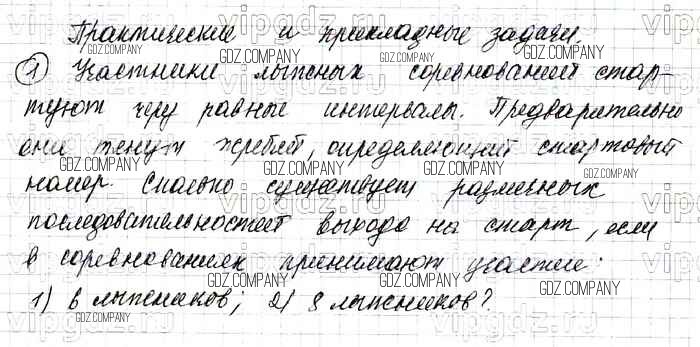 Практические и прикладные задачи.
1 Участники лыжных соревнований стар-
туют через равные интервалы. Предварительно
они тянут жребий, определяющий стартовый
номер. Сколько существует различных
последовательностей выхода на старт, если
в соревнованиях принимают участие:
1) 6 лыжников; 2) 8 лыжников?